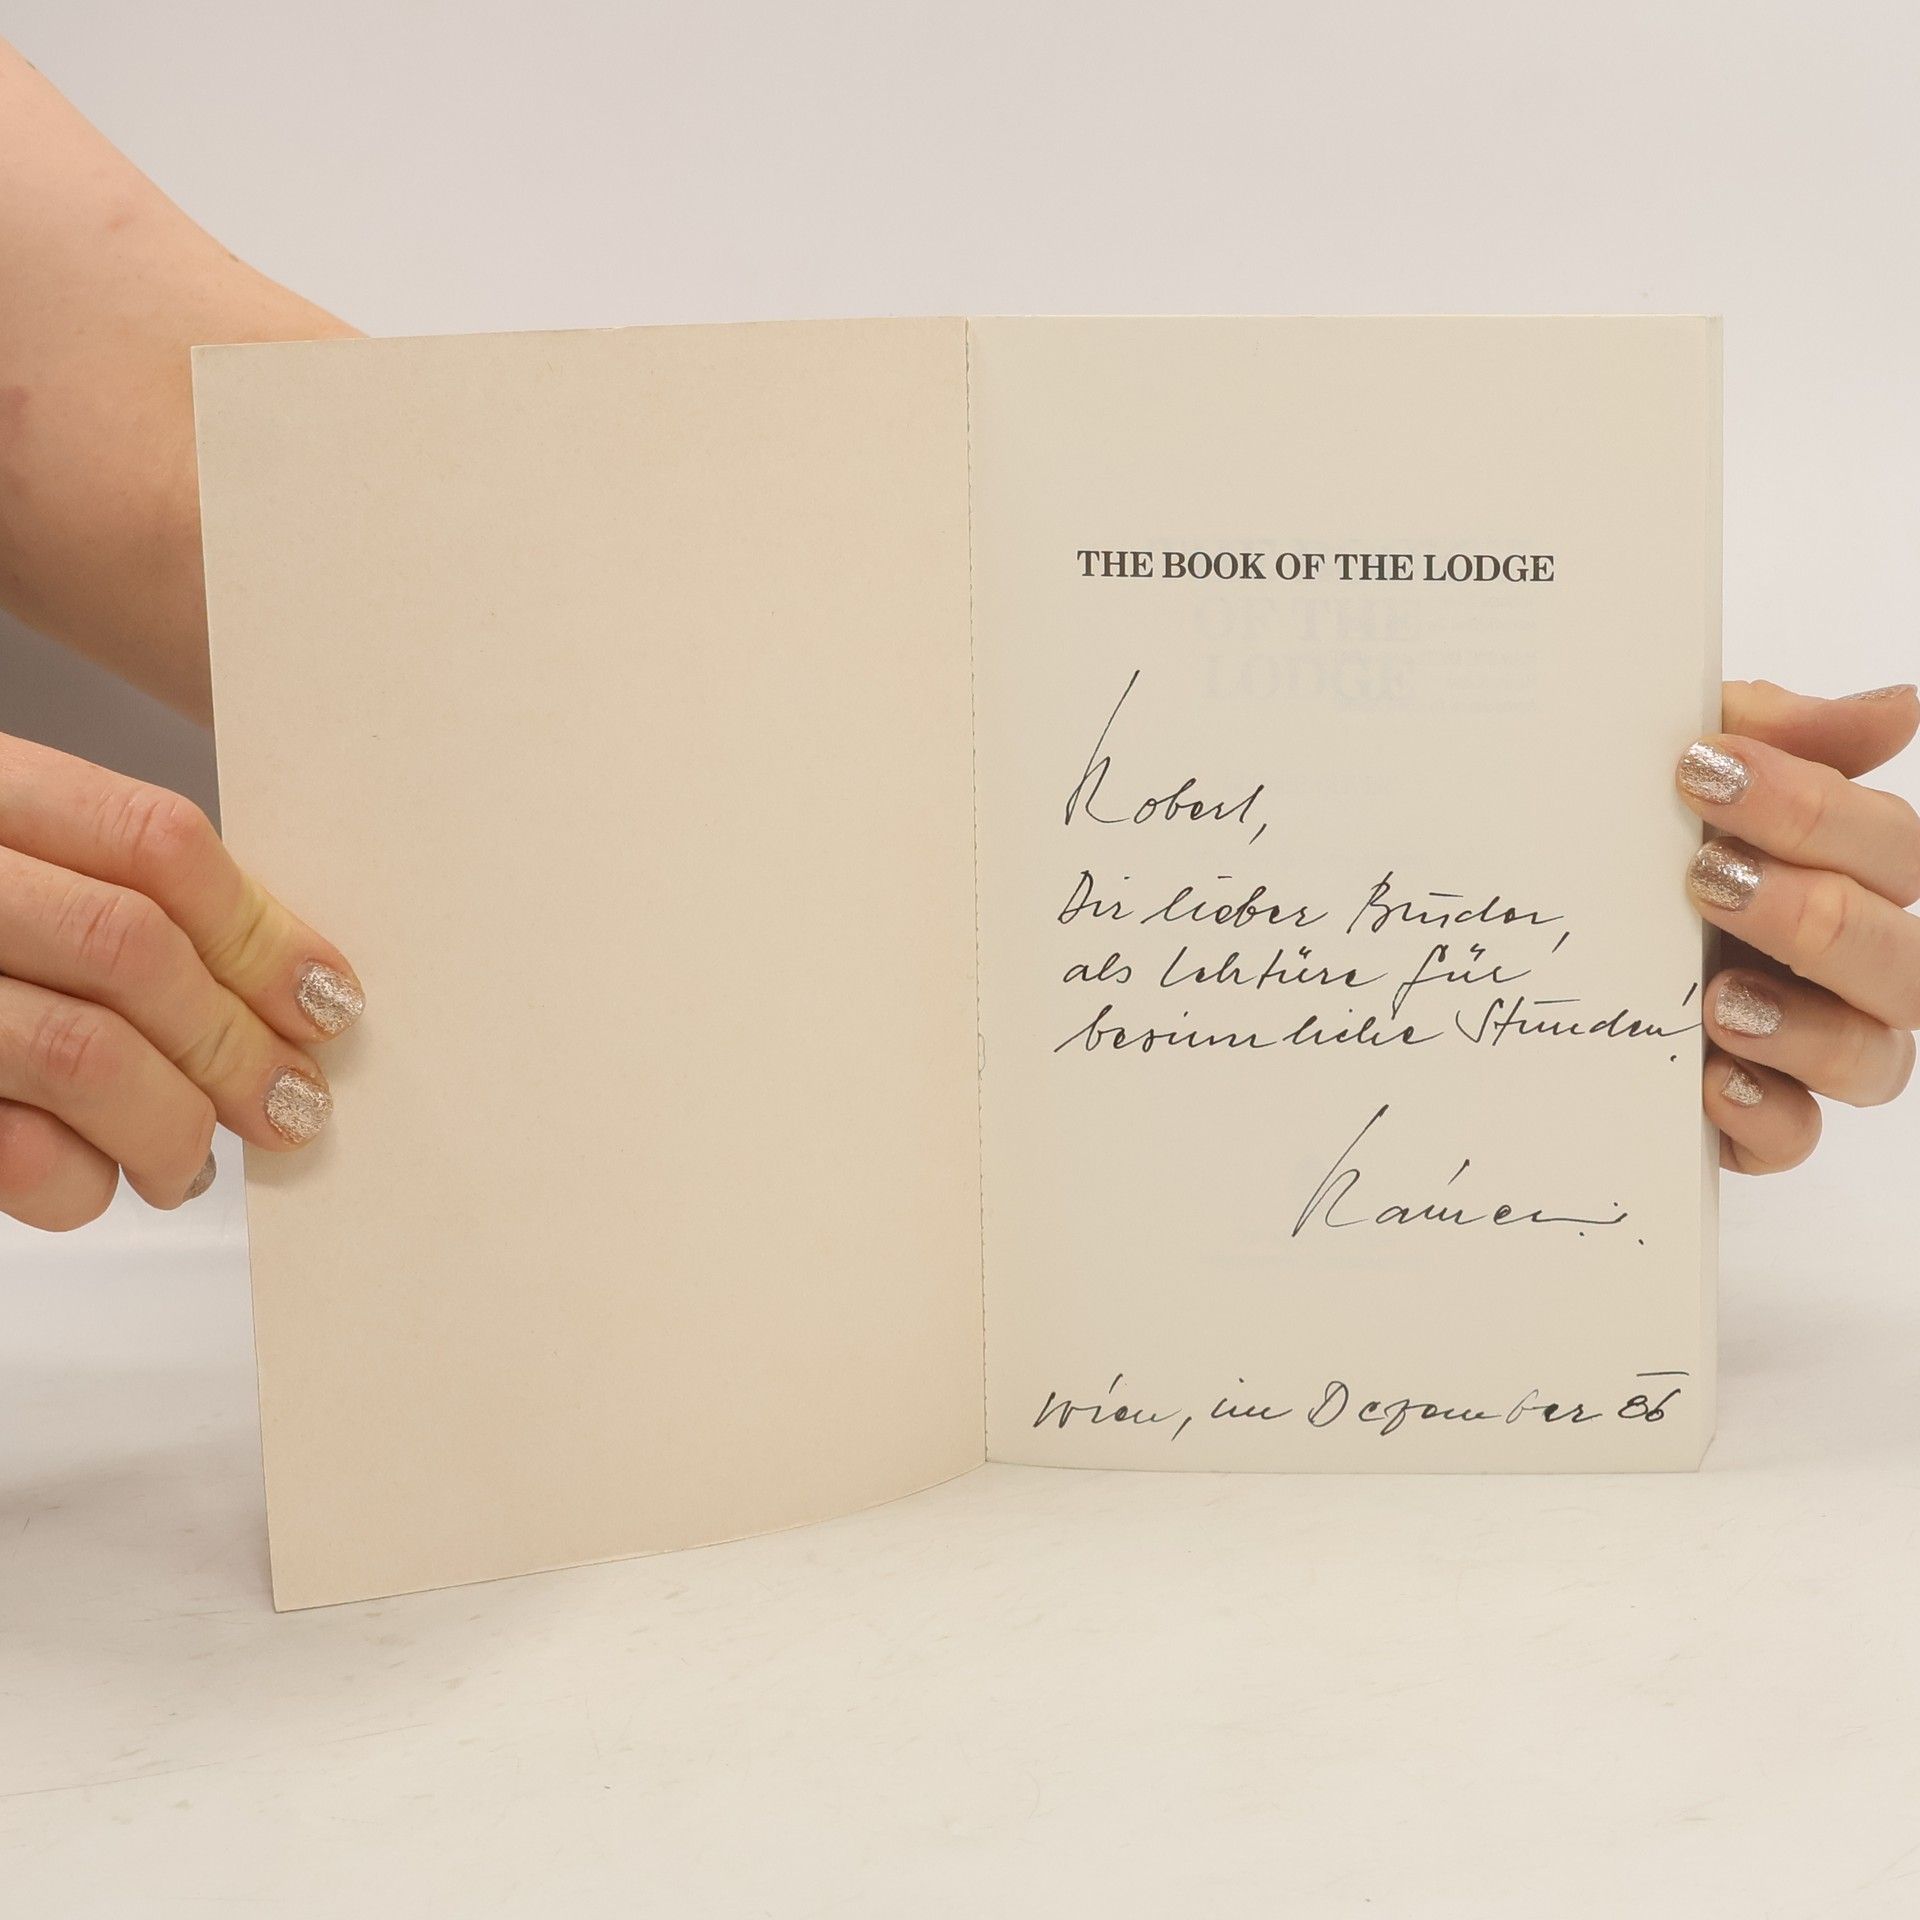 THE BOOK OF THE LODGE
OF THE
LODGE
Robert,
Dir lieber Bruder,
als Lektüre für
besinnliche Stunden!
Rainer
Wien, im Dezember 86